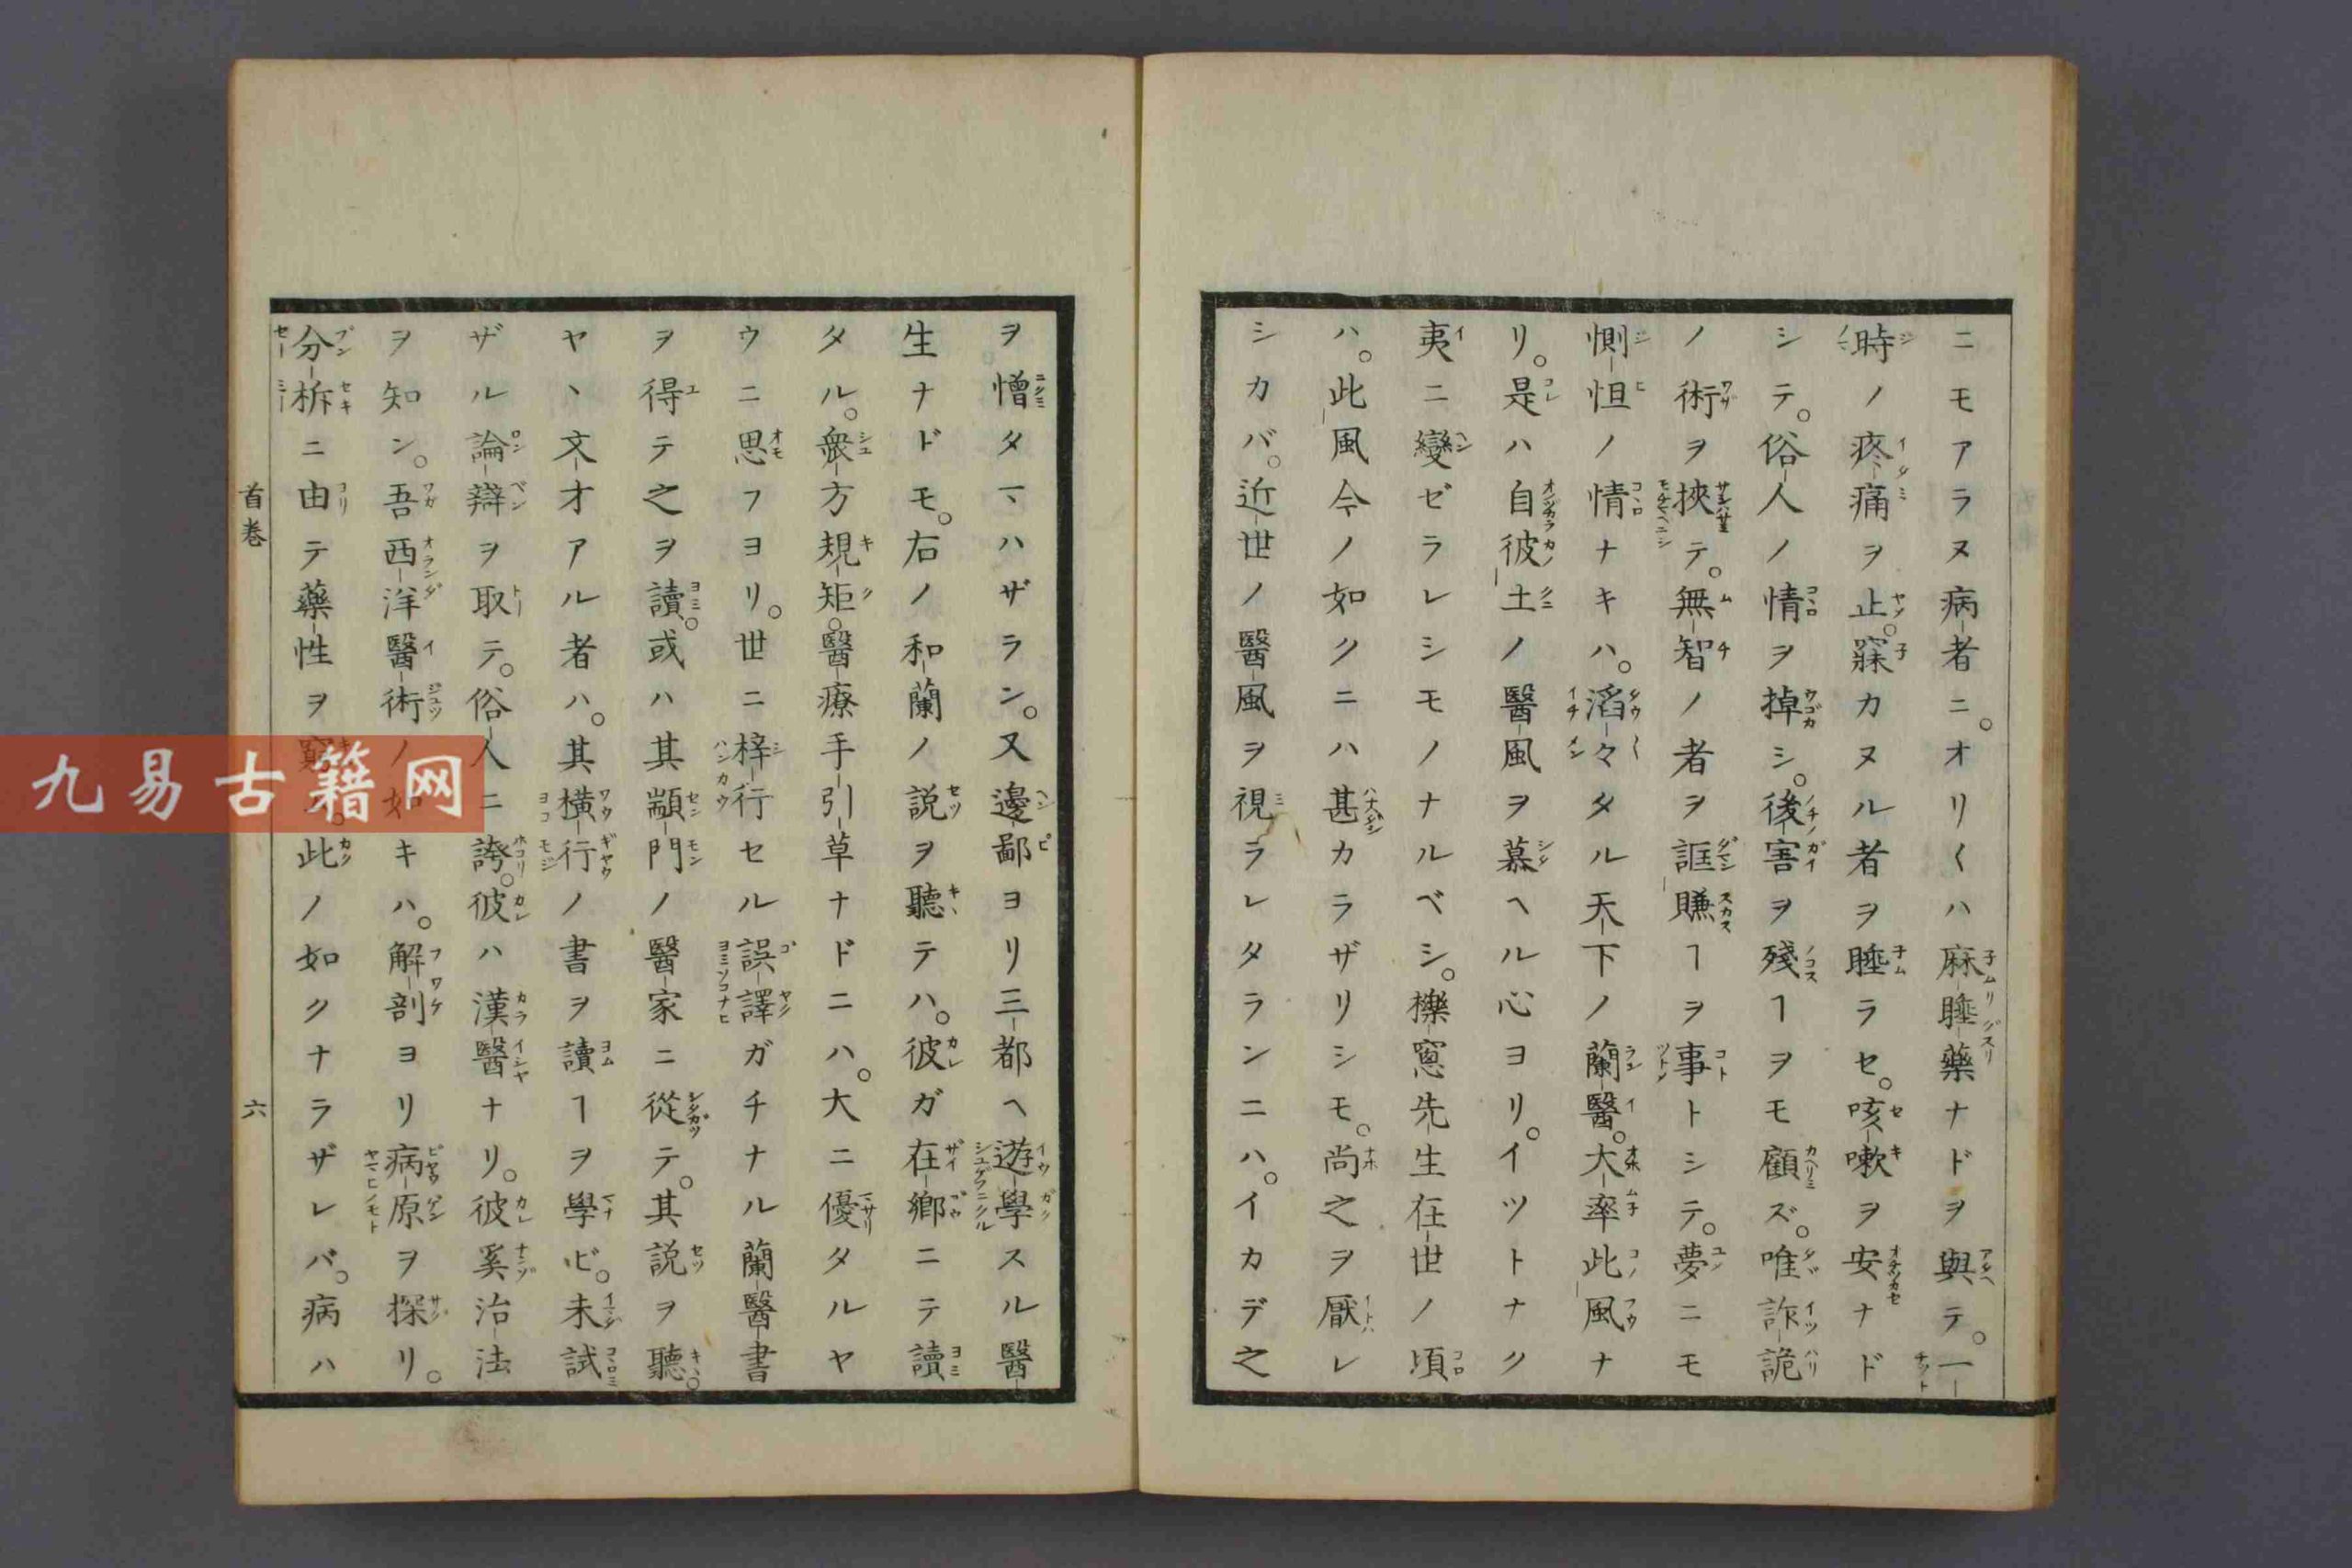 ニモアラヌ病者ニ。オリ〱ハ麻睡藥ナドヲ與テ。一
時ノ疼痛ヲ止。寐カヌル者ヲ睡ラセ。咳嗽ヲ安ナド
シテ。俗人ノ情ヲ掉シ。後害ヲ殘ヿヲモ顧ズ。唯詐詭
ノ術ヲ挾テ。無智ノ者ヲ誆賺ヿヲ事トシテ。夢ニモ
惻怛ノ情ナキハ。滔々タル天下ノ蘭醫。大率此風ナ
リ。是ハ自彼土ノ醫風ヲ慕ヘル心ヨリ。イツトナク
夷ニ變ゼラレシモノナルベシ。櫟窻先生在世ノ頃
ハ。此風今ノ如クニハ甚カラザリシモ。尚之ヲ厭レ
シカバ。近世ノ醫風ヲ視ラレタランニハ。イカデ之
ヲ憎タマハザラン。又邊鄙ヨリ三都ヘ遊學スル醫
生ナドモ。右ノ和蘭ノ説ヲ聽テハ。彼ガ在鄉ニテ讀
タル。衆方規矩。醫療手引草ナドニハ。大ニ優タルヤ
ウニ思フヨリ。世ニ梓行セル誤譯ガチナル蘭醫書
ヲ得テ之ヲ讀。或ハ其顓門ノ醫家ニ從テ。其説ヲ聽。
ヤヽ文才アル者ハ。其橫行ノ書ヲ讀ヿヲ學ビ。未試
ザル論辯ヲ取テ。俗人ニ誇。彼ハ漢醫ナリ。彼奚治法
ヲ知ン。吾西洋醫術ノ如キハ。解剖ヨリ病原ヲ探リ。
分析ニ由テ藥性ヲ窮ム。此ノ如クナラザレバ。病ハ
首卷
六
九易古籍网